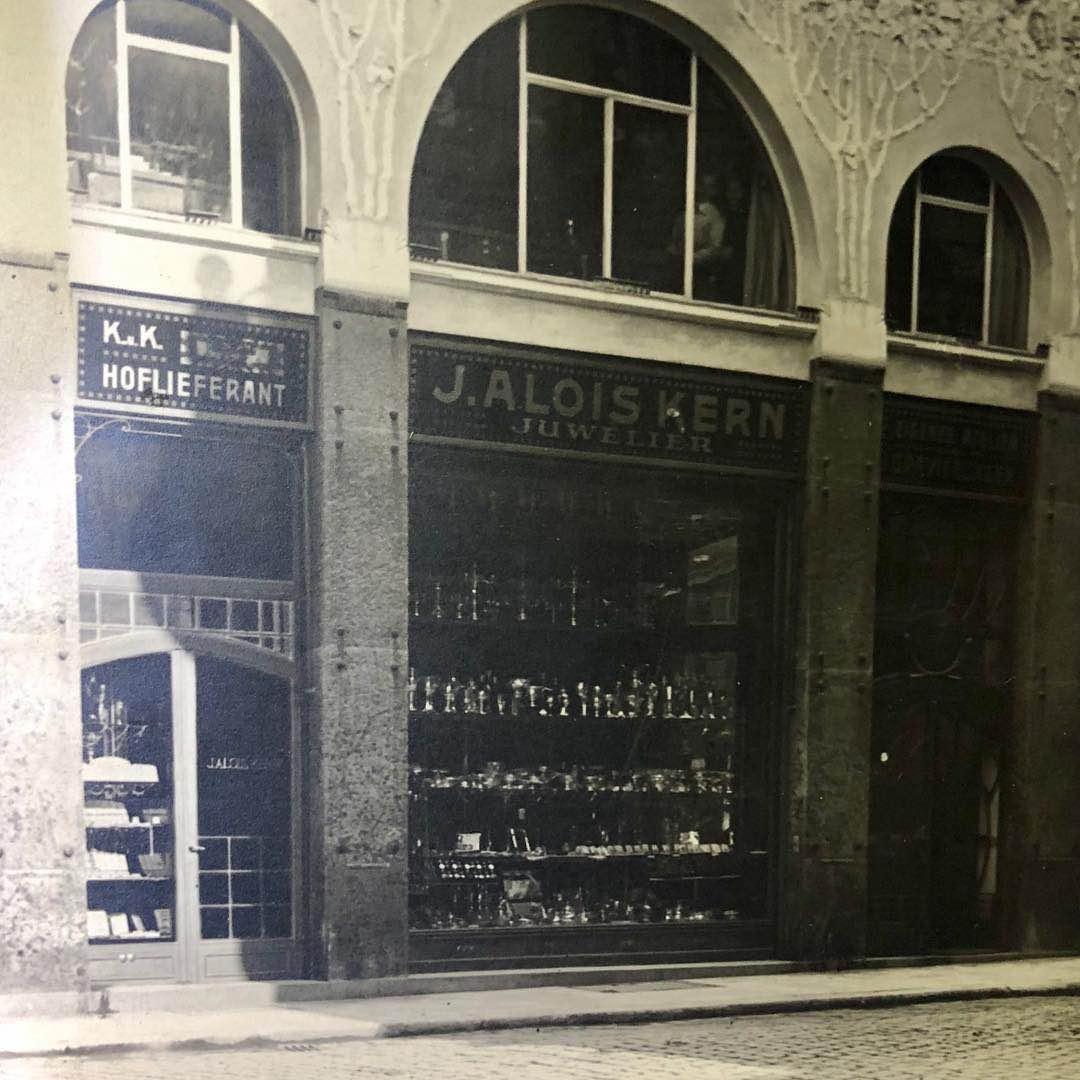 K.u.K.
HOFLIEFERANT
J. ALOIS KERN
JUWELIER
J.ALOIS KERN